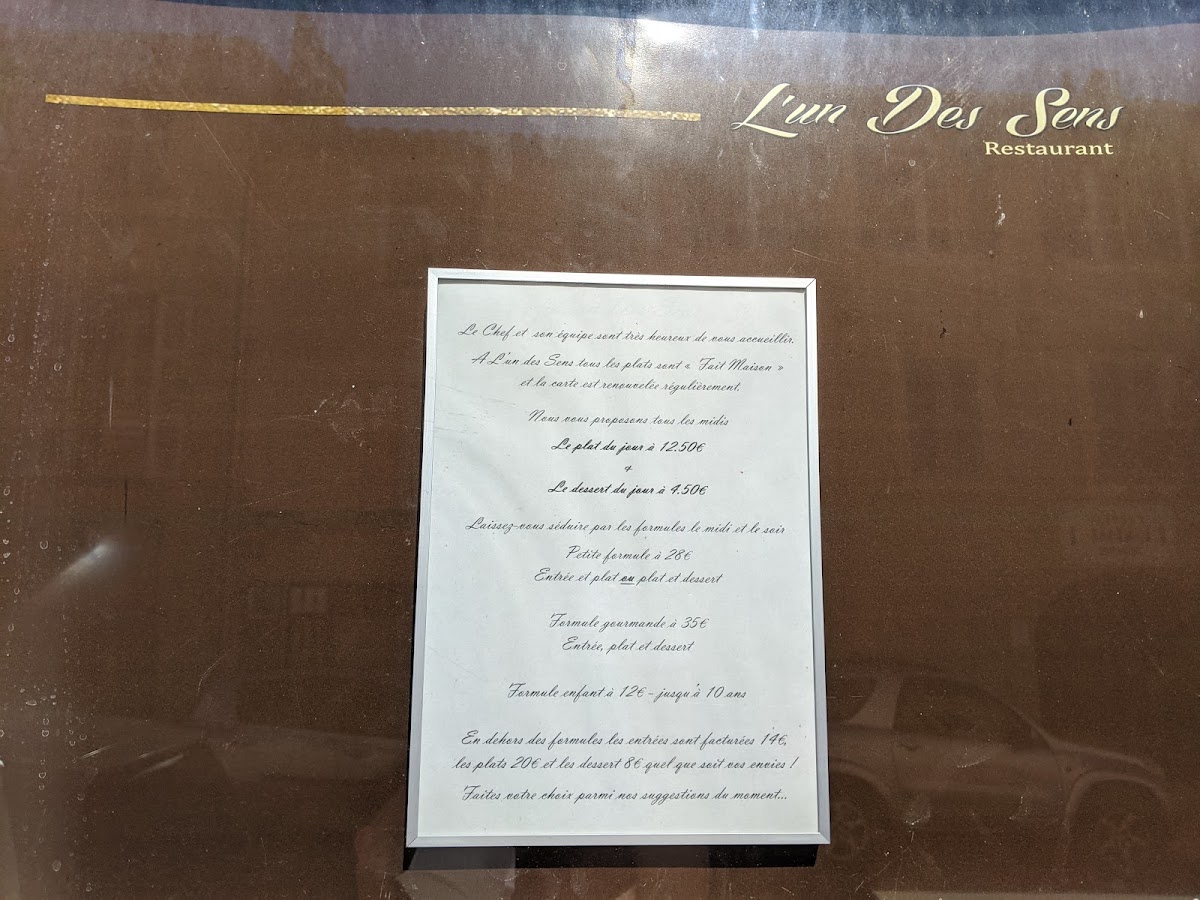 L'un Des Sens
Restaurant
Le Chef et son équipe sont très heureux de vous accueillir.
A L'un des Sens tous les plats sont « Fait Maison »
et la carte est renouvelée régulièrement.
Nous vous proposons tous les midis
Le plat du jour à 12.50€
&
Le dessert du jour à 4.50€
Laissez-vous séduire par les formules le midi et le soir
Petite formule à 28€
Entrée et plat ou plat et dessert
Formule gourmande à 35€
Entrée, plat et dessert
Formule enfant à 12€ - jusqu'à 10 ans
En dehors des formules les entrées sont facturées 14€,
les plats 20€ et les dessert 8€ quel que soit vos envies !
Faites votre choix parmi nos suggestions du moment...